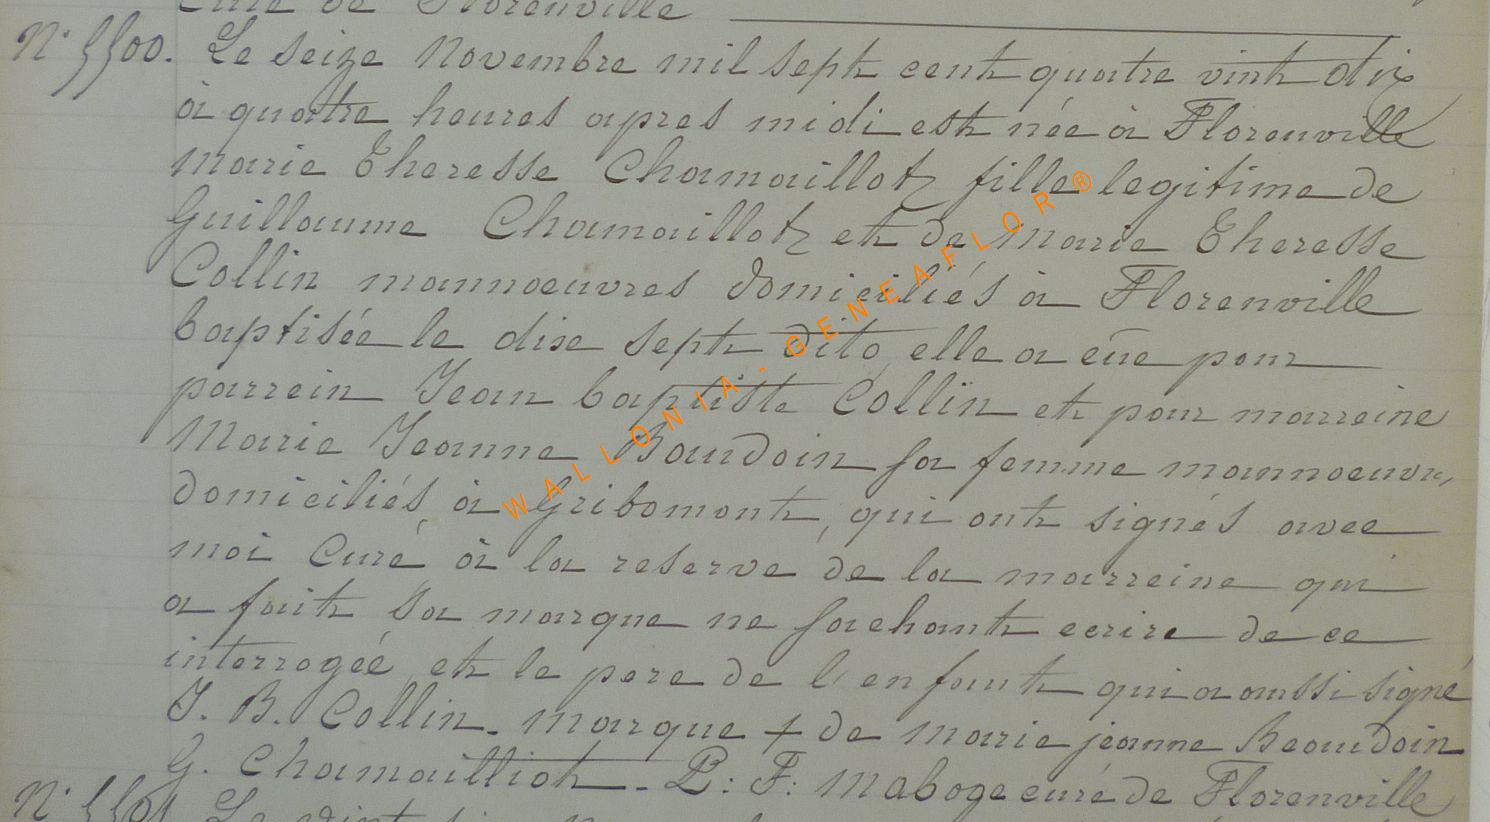 Curé de Florenville
N° 5500. Le seize Novembre mil sept cent quatre vint dix
à quatre heures apres midi est née à Florenville
marie Theresse Chamaillot fille legitime de
Guillaume Chamaillot et de Marie Theresse
Collin mannoeuvres domiciliés à Florenville
baptisée le dise sept dito, elle a eüe pour
parrein Jean baptiste Collin et pour marreine
Marie Jeanne Baudoin sa femme mannoeuvre,
domiciliés à Gribomont, qui ont signés avec
moi Curé à la reserve de la marreine qui
a fait sa marque ne sachant ecrire de ce
interrogéé et le pere de l'enfant qui a aussi signé
J. B. Collin. marque + de marie jeanne Beaudoin
G. Chamailliot. P: F: Maboge curé de Florenville
N° 5501 Le vint
WALLONIA - GENEAFLOR®